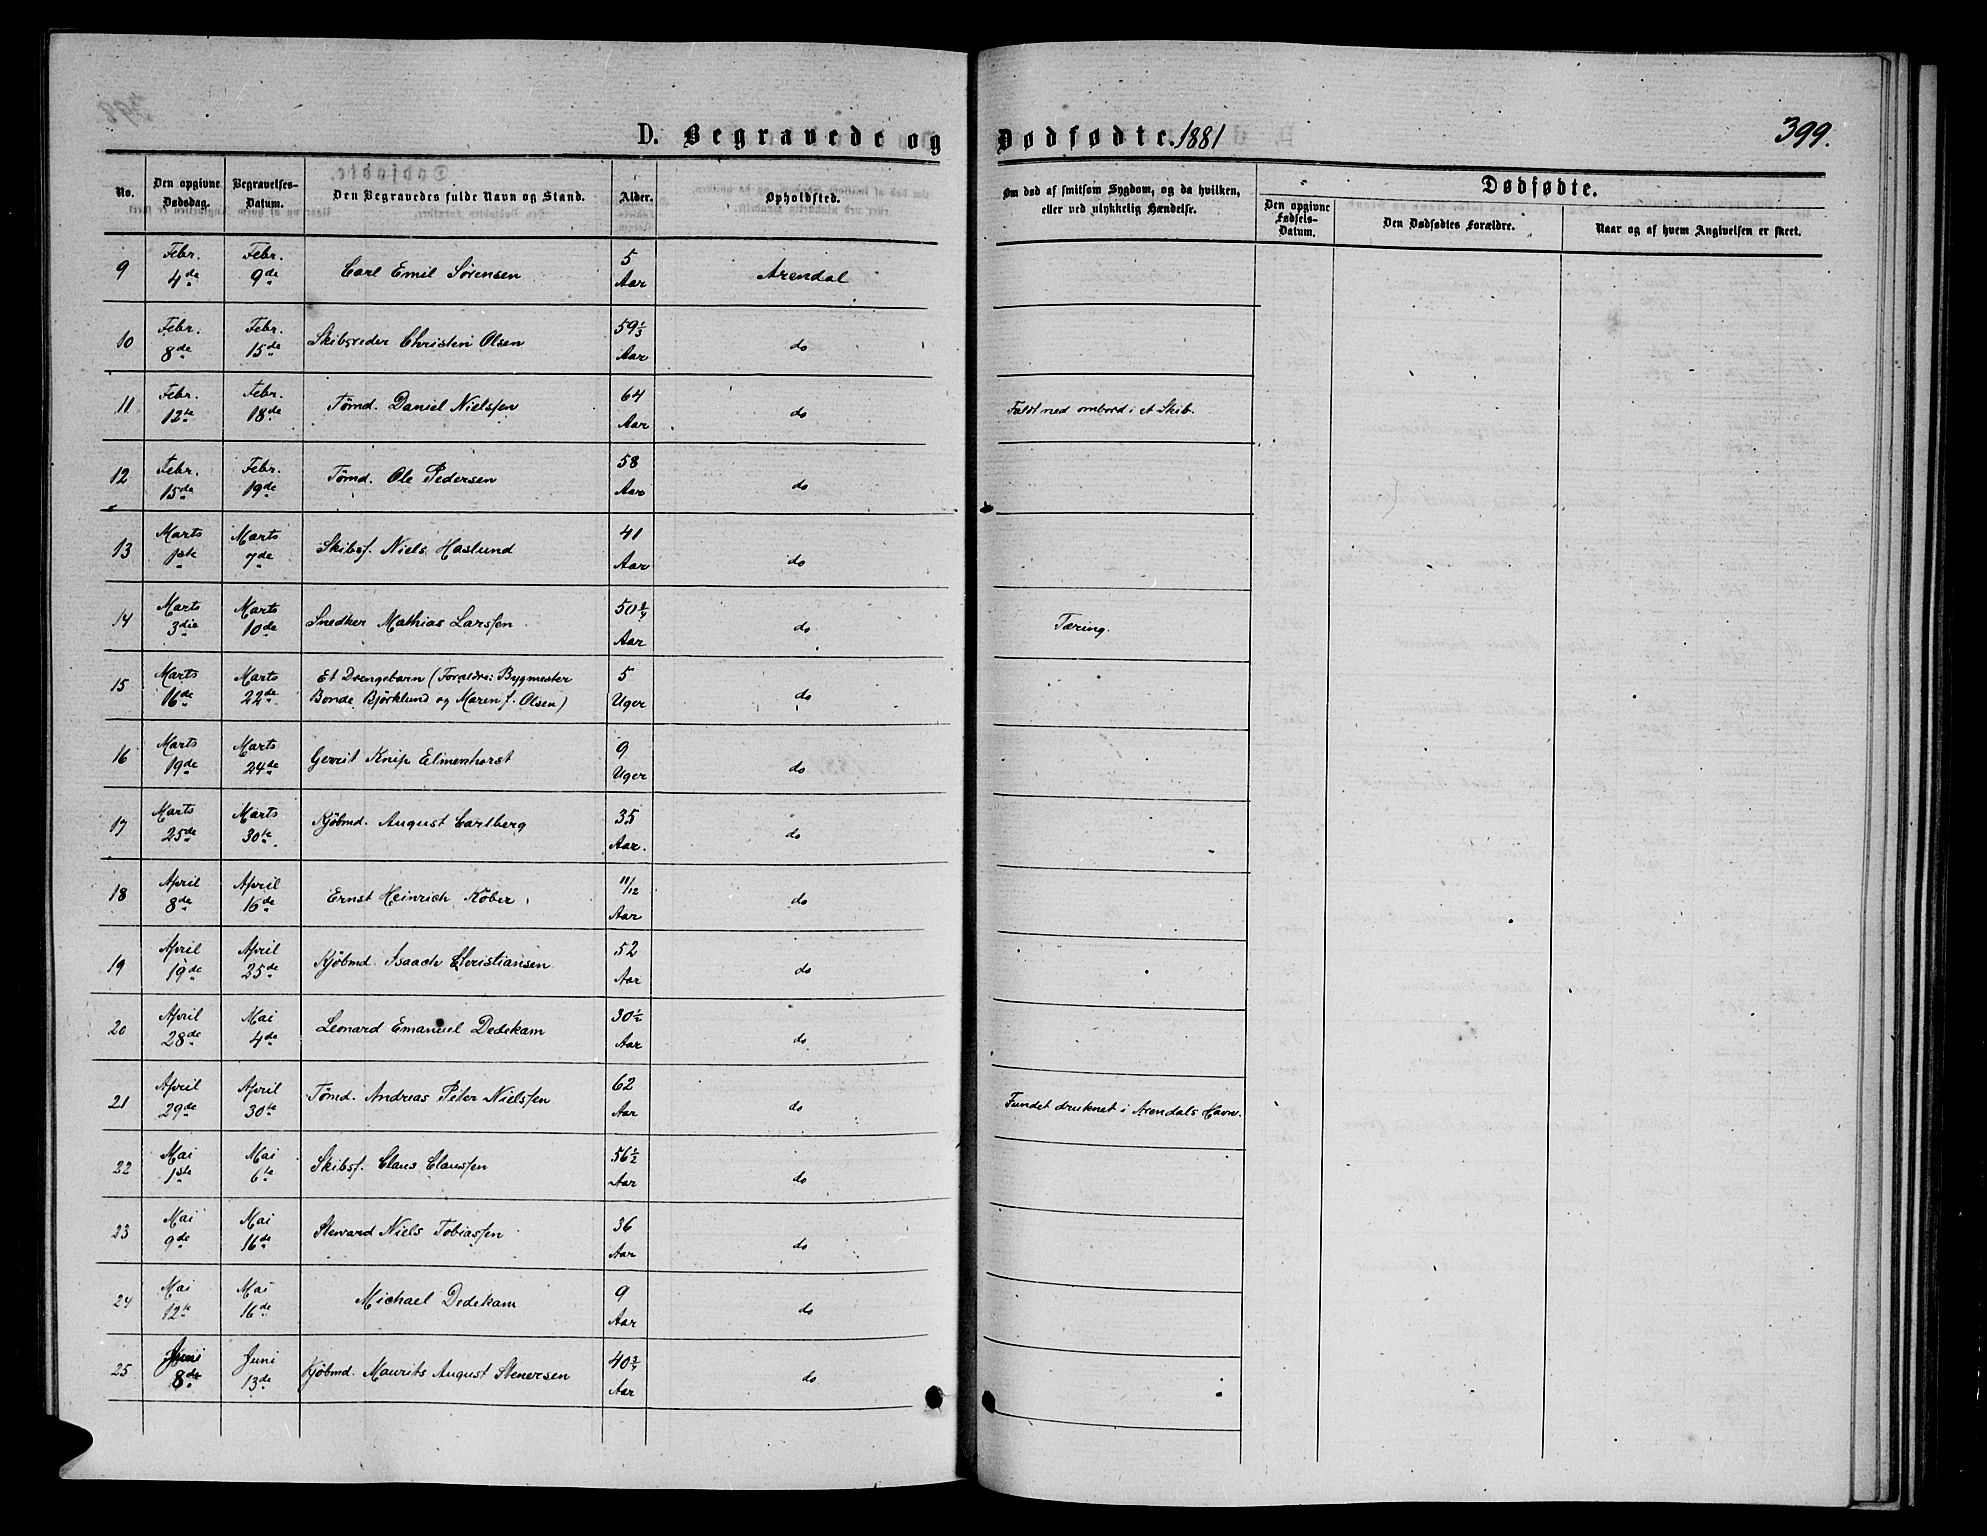 D. Begravede og Dødfødte. 1881
399.
No. | Den opgivne Dødsdag. | Begravelses-Datum. | Den Begravedes fulde Navn og Stand. | Alder. | Opholdsted. | Om død af smitsom Sygdom, og da hvilken, eller ved ulykkelig Hændelse. | Dødfødte. | Den opgivne Fødsels-Datum. | Den Dødfødtes Forældre. | Naar og af hvem Angivelsen er skeet.
9 | Febr. 4de | Febr. 9de | Carl Emil Sørensen | 5 Aar | Arendal
10 | Febr. 8de | Febr. 15de | Skibsreder Christen Olsen | 59⅓ Aar | do
11 | Febr. 12te | Febr. 18de | Tømd. Daniel Nielssen | 64 Aar | do | Faldt ned ombord i et Skib.
12 | Febr. 15de | Febr. 19de | Tømd. Ole Pedersen | 58 Aar | do
13 | Marts 1ste | Marts 7de | Skibsf. Niels Haslund | 41 Aar | do
14 | Marts 3die | Marts 10de | Snedker Mathias Larssen | 50¾ Aar | do | Tæring.
15 | Marts 16de | Marts 22de | Et Drengebarn (Forældre: Bygmester Bonde Björklund og Maren f. Olsen) | 5 Uger | do
16 | Marts 19de | Marts 24de | Gerrit Knip Elmenhorst | 9 Uger | do
17 | Marts 25de | Marts 30te. | Kjøbmd. August Carlberg | 35 Aar. | do
18 | April 8de | April 16de | Ernst Heinrich Köber | 11/12 Aar | do
19 | April 19de | April 25de | Kjøbmd. Isaach Christiansen | 52 Aar | do
20 | April 28de | Mai 4de | Leonard Emanuel Dedekam | 30½ Aar | do
21 | April 29de | April 30te | Tømd. Andreas Peter Nielssen | 62 Aar | do | Fundet druknet i Arendals Havn.
22 | Mai 1ste | Mai 6te | Skibsf. Claus Claussen | 56½ Aar | do
23 | Mai 9de | Mai 16de | Steward Niels Tobiassen | 36 Aar | do
24 | Mai 12te | Mai 16de | Michael Dedekam | 9 Aar | do
25 | Juni 8de | Juni 13de | Kjøbmd. Maurits August Stenersen | 40¾ Aar | do